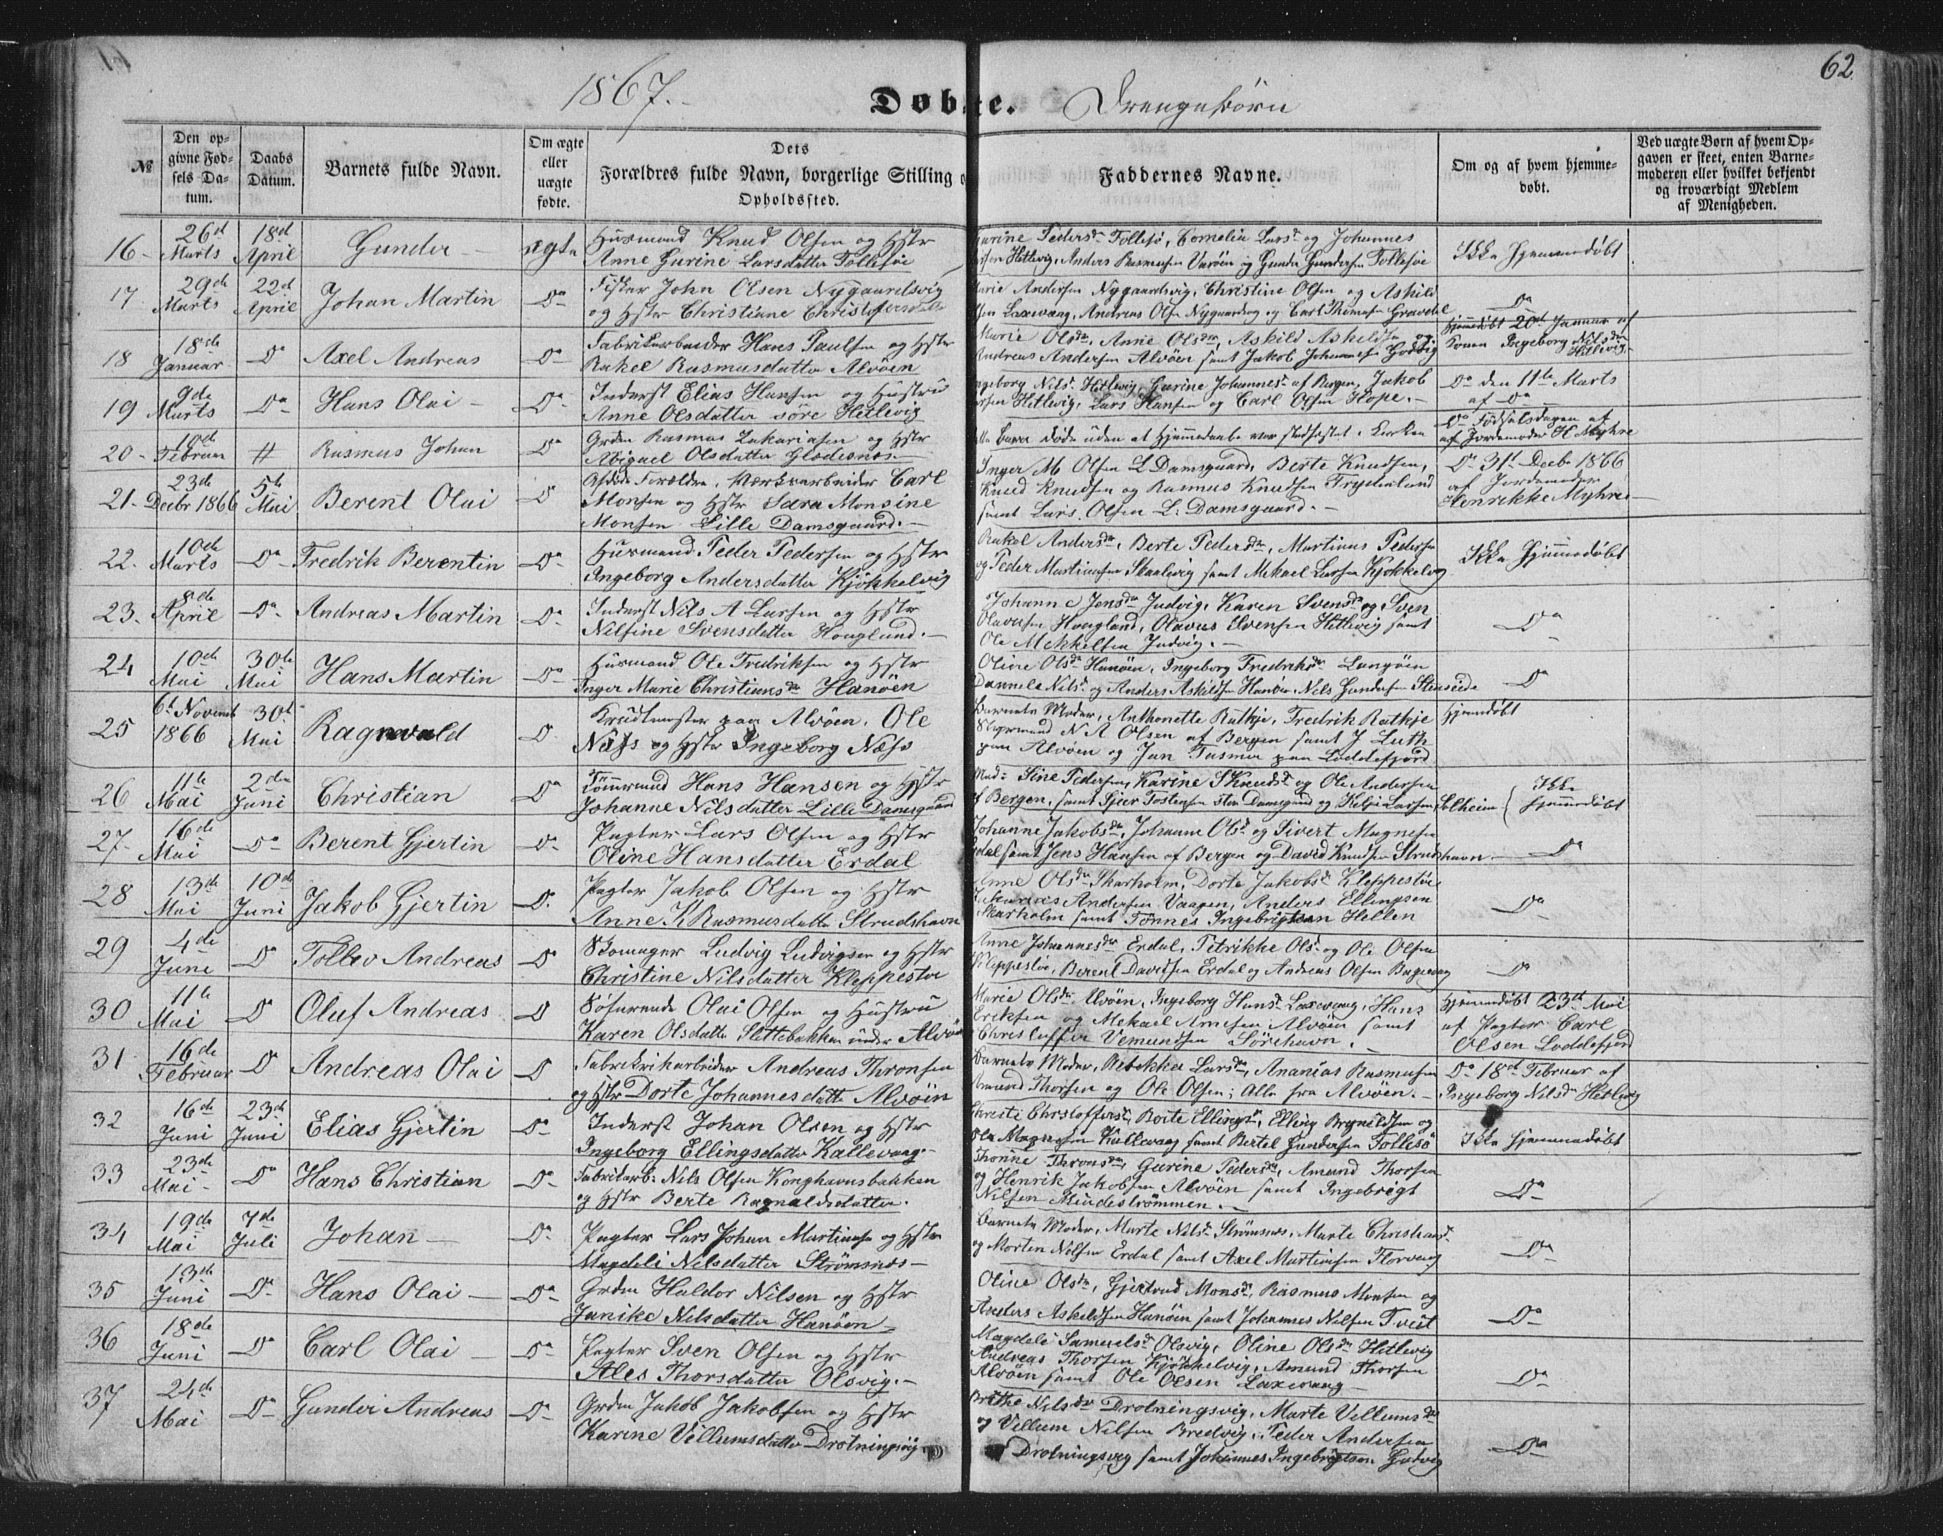 61
62
1867.
Døbte.
Drengebørn
№
Den op-
givne Fød-
sels Da-
tum.
Daabs
Datum.
Barnets fulde Navn.
Om ægte
eller
uægte
fødte.
Dets
Forældres fulde Navn, borgerlige Stilling o
Opholdssted.
Faddernes Navne.
Om og af hvem hjemme-
døbt.
Ved uægte Børn af hvem Op-
gaven er skeet, enten Barne-
moderen eller hvilket bekjendt
og troværdigt Medlem
af Menigheden.
16-
26d Marts
18d April
Gunder
ægte
Husmand Knud Olsen og Hstr
Anne Gurine Larsdatter Follesøe
Gurine Pedersdr Follesø, Cornelia Larsdr og Johannes
Hetlevig, Anders Rasmussen og Gunder Gundersen Follesøe
Ikke Hjemmedøbt
17
29de Marts
22d April
Johan Martin
Do
Fisker John Olsen Nygaardsvig
og Hstr Christiane Christoffersdtr
Marie Andersen Nygaardsvig, Christine Olsen og Askild
Laxevaag, Andreas Olsen Nygaardsvig og Carl Thomesen Gravdal
Do
18
18de Januar
Do
Axel Andreas
Do
Fabrikarbeider Hans Paulsen og Hstr
Rakel Rasmusdatter Alvøen
Marie Olsdr, Anne Olsdr, Askild Askildsen og
Andreas Andersen Alvøen samt Jakob Johannesen Godvig
Hjemmedøbt 20de Januar af
Konen Ingeborg Nilsdr
Hetlevig
19
9de Marts
Do
Hans Olai
Do
Inderst Elias Hansen og Hustru
Anne Olsdatter søre Hetlevig
Ingeborg Nilsd. Hetlevig, Gurine Johannesd. af Bergen, Jakob
Hetlevig, Lars Hansen og Carl Olsen Hope.
Do den 11te Marts
af Do
20-
10d Februar
#
Rasmus Johan
Do
Grdm Rasmus Zakariasen og Hstr
Abigael Olsdatter Gladesnes
Barn døde uden at Hjemmedaabe var stadfæstet i Kirken
Do Fødselsdagen af
af Jordemoder H Myhre
21-
23de Decbr 1866
5te Mai
Berent Olai
D
Forældre, Værksarbeider Carl
Monsen og Hstr Sara Monsine
Monsen Lille Damsgaard.
Inger M Olsen L Damsgaard, Berte Knudsen,
Knud Knudsen og Rasmus Knudsen Frydenlund
samt Lars Olsen L: Damsgaard.
Do 31t Decbr 1866
af Jordemoder
Henrikke Myhre
22.
10de Marts
Do
Fredrik Berentin
Do
Husmand Peder Pedersen og Hstr
Ingeborg Andersdatter Kjøkkelvig
Rakel Andersdr, Berte Pedersdr, Martinus Pedersen
og Peder Martinusen Skaalevig samt Mekael Larsen Kjøkkelvig
Ikke Hjemmedøbt
23.
8de April
Do
Andreas Martin
Do
Inderst Nils A Larsen og Hstr
Nilsine Svensdatter Hougland.
Johanne Jensdr Judvig, Karen Svensdr og Sven
Olavesen Hougland, Olavus Elvensen Hetlevig samt
Ole Mekkelsen Judvig.
Do
24
10de Mai
30de Mai
Hans Martin
Do
Husmand Ole Fredriksen og Hstr
Inger Marie Christiansdr Hanøen
Oline Olsdr Hanøen, Ingeborg Fredriksdr Langøen
Dannele Nilsd. og Anders Askildsen Hanøen, Nils Gundersen Steinseide
Do
25
6t Novemb 1866
30t Mai
Ragnvald
D
Krudtmester paa Alvøen, Ole
Næss og Hstr Ingeborg Næss
Barnets Moder, Anthonette Ratkje, Fredrik Ratkje
Styrmand N A Olsen af Bergen samt J. Luth
paa Alvøen og Jan Tasmer paa Loddefjord
Hjemdøbt
26
11te Mai
2den Juni
Christian
Do
Tømrmand Hans Hansen og Hstr
Johanne Nilsdatter Lille Damsgaard
Mad: Sine Pedersen, Karine S Knudsd og Ole Andersen
af Bergen, samt Sjur Tostensen Damsgaard og Kitje Larsen Solheim
Ikke
Hjemmedøbt
27-
16de Mai
Do
Berent Gjertin
D-
Pagter Lars Olsen og Hstr
Oline Hansdatter Erdal
Johanne Jakobsdr, Johanne Olsd og Sivert Magnesen
Erdal samt Jens Hansen af Bergen og David Knudsen Strudshavn
Do
28
13de Mai
10d Juni
Jakob Gjertin
D.
Pagter Jakob Olsen og Hstr
Anne K Rasmusdatter Strudshavn
Anne Olsdr Skarholm, Dorte Jakobsd Kleppestøe
Andersen Vaagen, Anders Ellingsen
Skarholm samt Tønnes Ingebrigtsen Hellen
Do
29
4de Juni
D
Tollev Andreas
D
Skomager Ludvig Ludvigsen og Hstr
Christine Nilsdatter Kleppestø
Anne Johannesdr Erdal, Petrikke Olsd. og Ole Olsen
Kleppestøe, Berent Davidsen Erdal og Andreas Olsen
Do
30
11te Mai
D
Oluf Andreas
D
Søfarende Olai Olsen og Hustru
Karen Olsdatter Slettebakken under Alvøen
Marie Olsdr Alvøen, Ingeborg Hansd. Laxevaag, Hans
Eriksen og Mekael Arnesen Alvøen samt
Christoffer Vemundsen Sørehavn.
Hjemmedøbt 23de Mai
af Pagter Carl
Olsen Loddefjord
31
16de Februar
D
Andreas Olai
D
Fabrikarbeider Andreas Thronsen
og Hstr Dorte Johannesdatter Alvøen
Barnets Moder, Rebekka Larsdr, Ananias Rasmusen
Amund Thorsen og Ole Olsen; Alle fra Alvøen.
Do 18d Februar af
Ingeborg Nilsd Hetlevig
32
16de Juni
23de Juni
Elias Gjertin
Do
Inderst Johan Olsen og Hstr
Ingeborg Ellingsdatter Kallevaag.
Christoffersd, Berte Ellingsd, Elling Brynildsen og
Ole Magnesen Kallevaag samt Bertel Gundersen Follesø
Ikke Hjemmedøbt
33
23de Mai
Do
Hans Christian
Do
Fabrikarb: Nils Olsen Konghavnsbakken
og Hstr Berte Ragnaldsdatter.
Thorine Thronsdr, Gurine Pedersdr, Amund Thorsen
og Henrik Jakobsen Alvøen samt Ingebrigt
Nilsen Mindestrømmen.
Do
34
19de Mai
7de Juli
Johan
Do
Pagter Lars Johan Martinusen og Hstr
Magdeli Nilsdatter Strømsnes
Barnets Moder, Marte Nilsd. Strømsnes, Marte Christiansd.
og Morten Nilsen Erdal samt Axel Martinusen Florvaag
Do
35
13de Juni
Do
Hans Olai
Do
Grdm Haldor Nilsen og Hstr
Janike Nilsdatter Hanøen
Oline Olsdr, Gjertrud Monsd, Rasmus Monsen og
Anders Askildsen Hanøen samt Johannes Nilsen Tveit
Do
36
18de Juni
D
Carl Olai
Do
Pagter Sven Olsen og Hstr
Ales Thorsdatter Olsvig.
Magdele Samuelsd Olsvig, Oline Olsdr Hetlevig
Andreas Thorsen Kjøkkelvig, Amund Thorsen
Alvøen samt Ole Olsen Laxevaag
Do
37
24de Mai
Do
Gunder Andreas
Do
Grdm Jakob Jakobsen og Hstr
Karine Villumsdatter Drotningsvig
Brithe Nilsdr Drotningsvig, Marte Villumsdr
og Villum Nilsen Bredvig, Peder Andersen
Drotningsvig samt Johannes Ingebrigtsen Godvig
Do